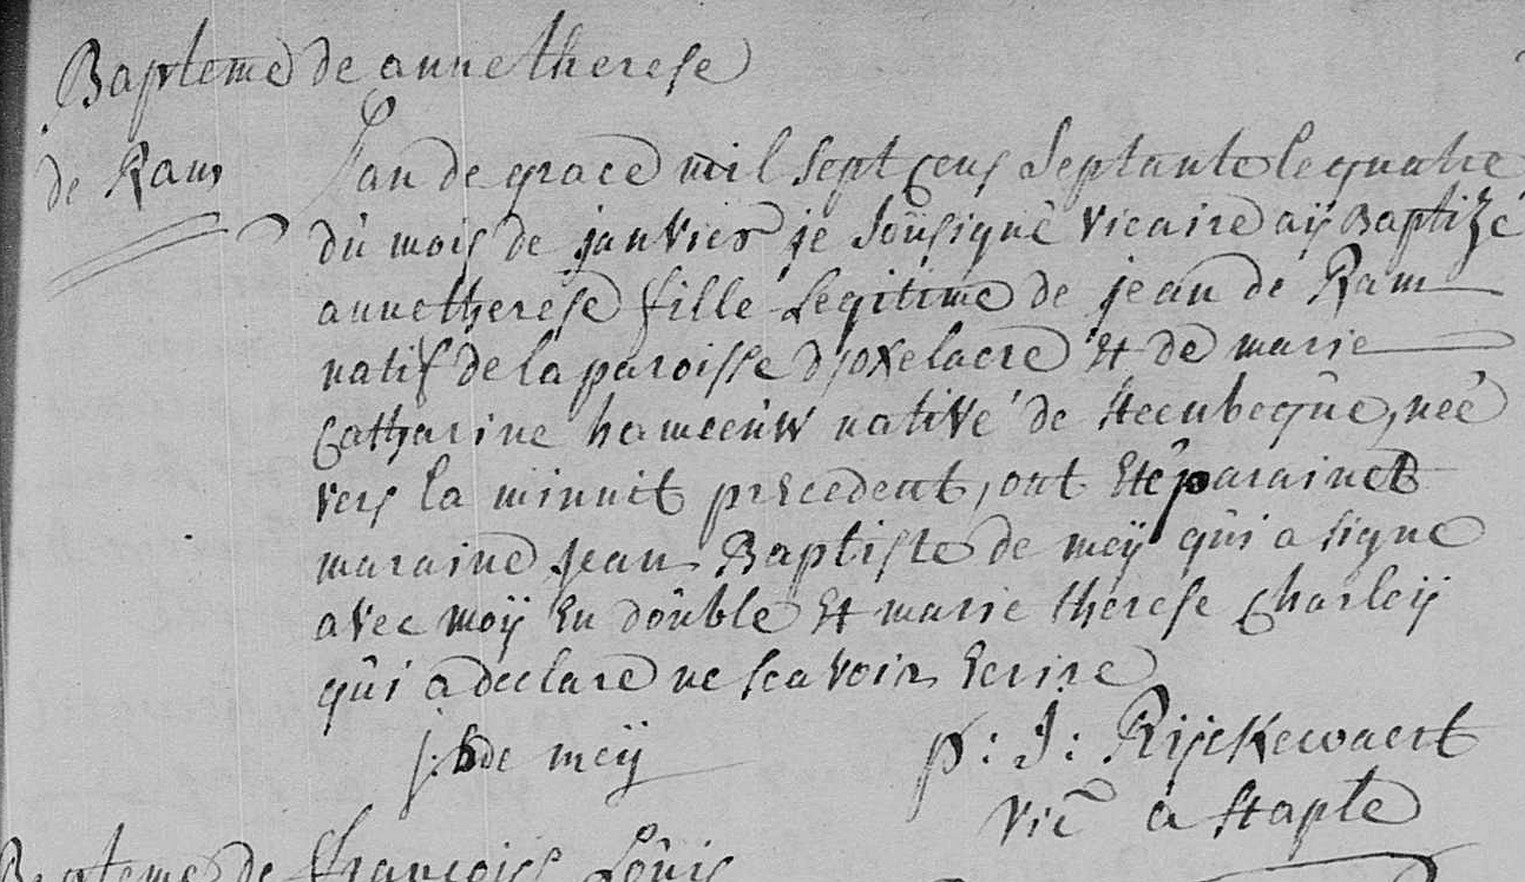 Bapteme de anne therese
de Ram
Lan de grace mil sept cens septante le quatre
dù mois de janvier je soùsigné vicaire aÿ Baptizé
anne therese fille legitime de jean de Ram
natif de la paroisse d'oxelaere et de marie
Catharine hameeùw native de steenbeqùe, neé
vers la minuit precedent, ont eté parain et
maraine jean Baptiste de meÿ qùi a signe
avec moÿ en doùble et marie therese Charleÿ
qùi a declare ne scavoir ecrire
j: b de meÿ
p: J: Rijckewaert
vic a staple
Bapteme de françois Loùis